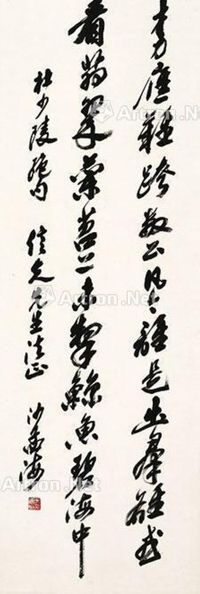 才力應難跨數公凡今誰是出羣雄或
看翡翠蘭苕上未掣鯨魚碧海中
杜少陵絕句 先生法正 沙孟海
Artron.Net